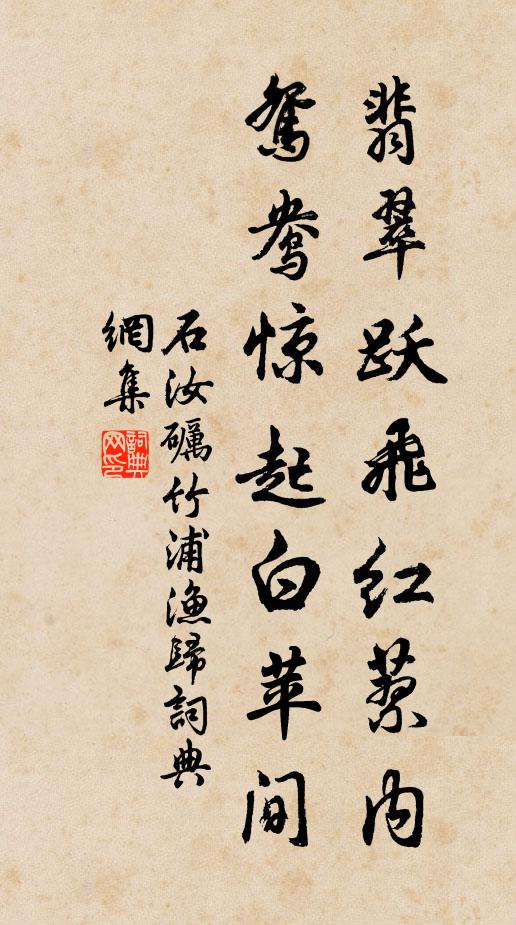 翡翠跃飛红蔡内
鸳鸯惊起白苹间
石汝礪竹浦漁歸詞典
網集
詞典
网印